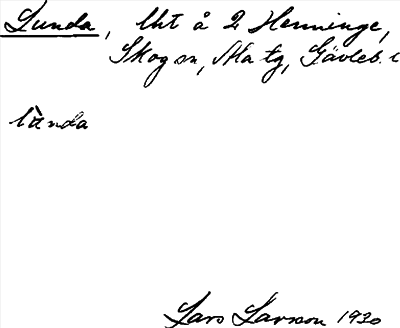 Lunda, lht å 2 Henninge,
Skog sn, Ala tg, Gävleb. l
lùnda
Lars Larsson 1930